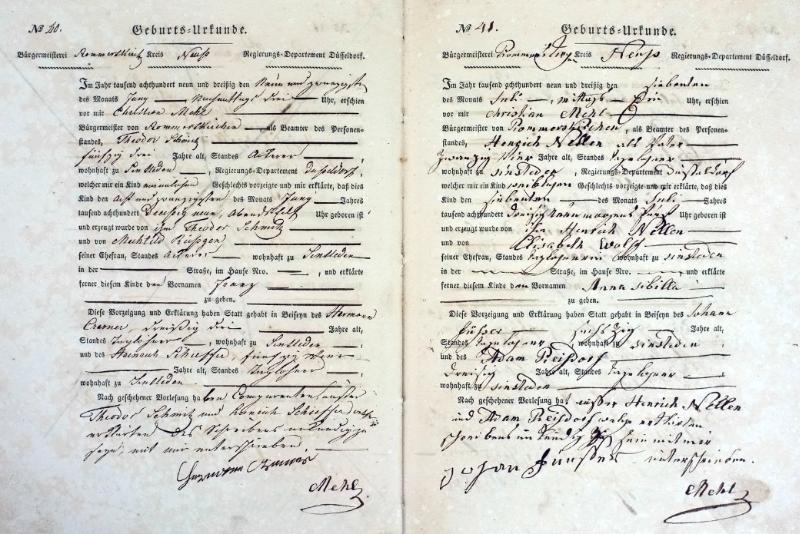 № 40.
Geburts-Urkunde.
Bürgermeisterei Rommerskirch Kreis Neuss Regierungs-Departement Düsseldorf.
Im Jahr tausend achthundert neun und dreißig den Neun und zwanzigsten
des Monats Juny Nachmittags drei Uhr, erschien
vor mir Christian Mehl
Bürgermeister von Rommerskirchen als Beamter des Personen-
standes, Theodor Schmitz
fünfzig drei Jahre alt, Standes Ackerer
wohnhaft zu Sinsteden, Regierungs-Departement Düsseldorf,
welcher mir ein Kind männlichen Geschlechts vorzeigte und mir erklärte, daß dies
Kind den Acht und zwanzigsten des Monats Juny Jahrs
tausend achthundert Dreißig neun, Abends Uhr geboren ist
und erzeugt wurde von ihm Theodor Schmitz
und von
seiner Ehefrau, Standes Ackerer wohnhaft zu Sinsteden
in der Straße, im Hause Nro. , und erklärte
ferner diesem Kinde den Vornamen Franz
zu geben.
Diese Vorzeigung und Erklärung haben Statt gehabt in Beiseyn des Hermann
dreißig drei Jahre alt,
Standes Taglöhner, wohnhaft zu Sinsteden
und des fünfzig
Jahre alt, Standes Taglöhner
wohnhaft zu Sinsteden
Nach geschehener Vorlesung haben Comparenten
Theodor Schmitz und
erklärten des Schreibens unkundig zu
seyn, mit mir unterschrieben
Mehl
№ 41.
Geburts-Urkunde.
Bürgermeisterei Kreis Neuss Regierungs-Departement Düsseldorf.
Im Jahr tausend achthundert neun und dreißig den siebenten
des Monats Juli, mittags Uhr, erschien
vor mir Christian Mehl
Bürgermeister von Rommerskirchen, als Beamter des Personen-
standes, Henrich Nellen als Vater
zwanzig vier Jahre alt, Standes tagelöhner
wohnhaft zu sinsteden, Regierungs-Departement Düsseldorf
welcher mir ein Kind weiblichen Geschlechts vorzeigte und mir erklärte, daß dies
Kind den siebenten des Monats Juli Jahres
tausend achthundert dreißig neun morgens fünf Uhr geboren ist
und erzeugt wurde von ihm Henrich Nellen
und von Elisabeth Wolff
seiner Ehefrau, Standes wohnhaft zu sinsteden
in der Straße, im Hause Nro. , und erklärte
ferner diesem Kinde den Vornamen Anna Sibilla
zu geben.
Diese Vorzeigung und Erklärung haben Statt gehabt in Beiseyn des Johann
sechszig Jahre alt,
Standes tagelöhner, wohnhaft zu sinsteden
und des Adam Reisdorf
dreißig Jahre alt, Standes tagelöhner
wohnhaft zu sinsteden
Nach geschehener Vorlesung hat außer Henrich Nellen
und Adam Reisdorf welche erklärten
schreibens unkundig zu sein mit mir
unterschrieben.
Mehl